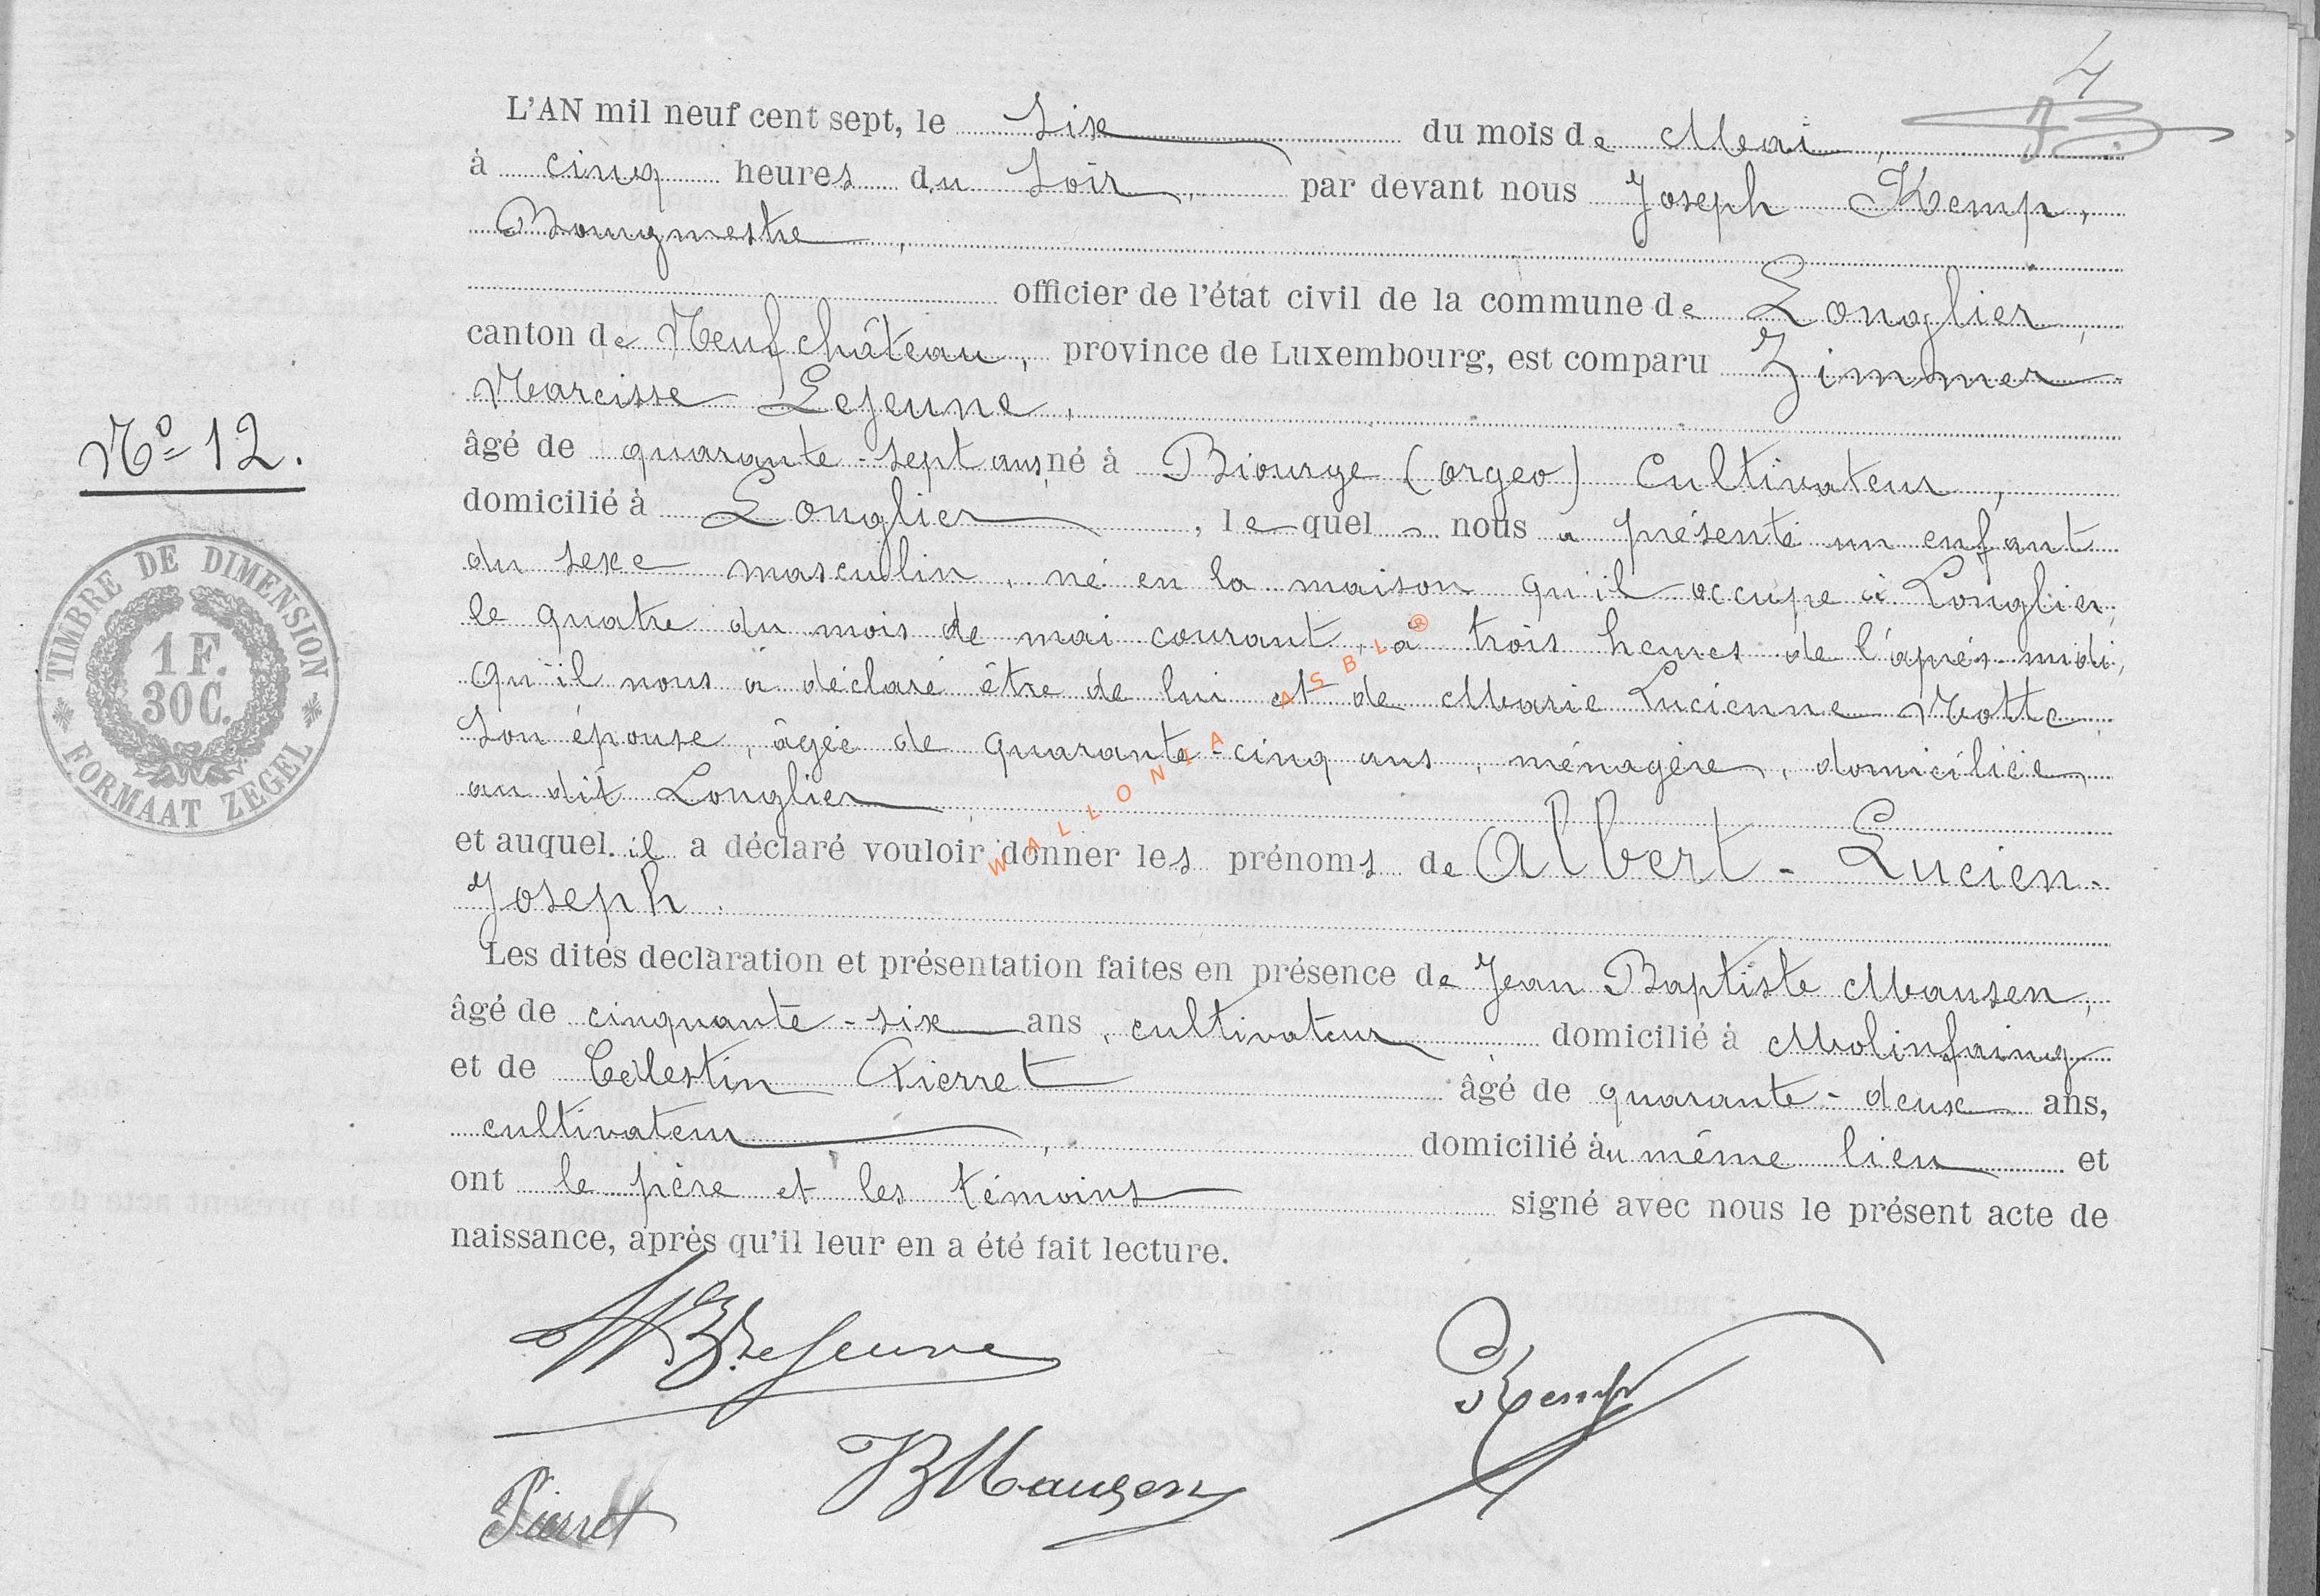 4
L'AN mil neuf cent sept, le six du mois de Mai,
à cinq heures du soir, par devant nous Joseph Kemp,
Bourgmestre,
officier de l'état civil de la commune de Longlier,
canton de Neufchâteau, province de Luxembourg, est comparu Zimmer
Narcisse Lejeune,
âgé de quarante-sept ans, né à Biourge (Orgeo) Cultivateur,
domicilié à Longlier, lequel nous a présenté un enfant
du sexe masculin, né en la maison qu'il occupe à Longlier,
le quatre du mois de mai courant, à trois heures de l'après-midi,
qu'il nous a déclaré être de lui et de Marie Lucienne Motte,
son épouse, âgée de quarante-cinq ans, ménagère, domiciliée
au dit Longlier,
et auquel il a déclaré vouloir donner les prénoms de Albert-Lucien-
Joseph.
Les dites declaration et présentation faites en présence de Jean Baptiste Mausen,
âgé de cinquante-six ans, cultivateur, domicilié à Molinfaing
et de Célestin Pierret âgé de quarante-deux ans,
cultivateur, domicilié au même lieu et
ont le père et les témoins signé avec nous le présent acte de
naissance, après qu'il leur en a été fait lecture.
N° 12.
TIMBRE DE DIMENSION
1 F.
30 C.
FORMAAT ZEGEL
WALLONIA ASBL ®
Lejeune
Kemp
JB Mausen
Pierret